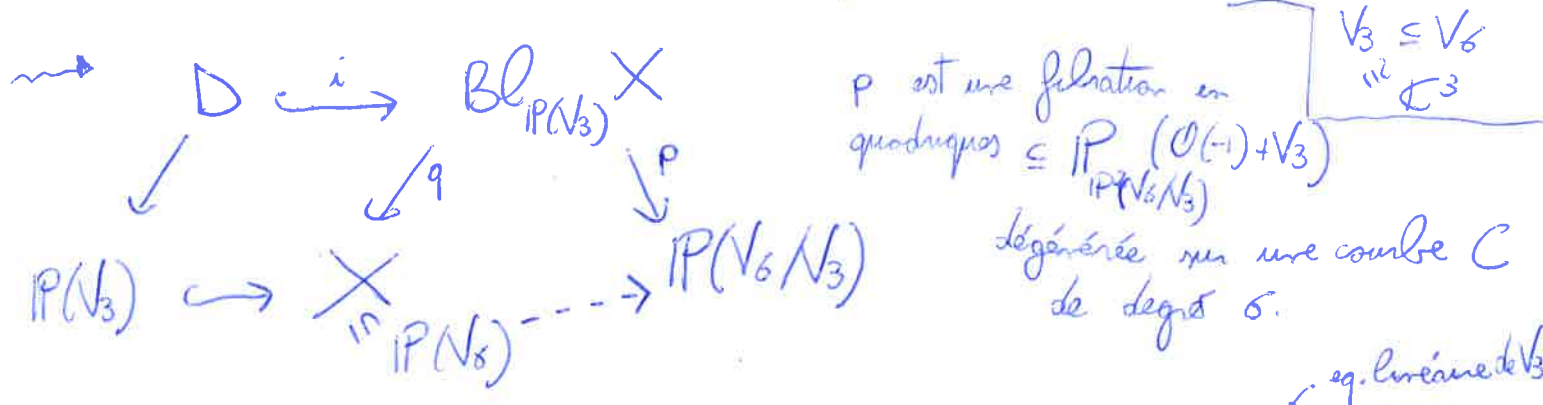 V₃ ⊆ V₆
≅ ℂ³
⇝ D ↪ Bl_{ℙ(V₃)} X
i
q
p
ℙ(V₃) ↪ X ⇢ ℙ(V₆/V₃)
⊆ ℙ(V₆)
p est une fibration en
quadriques ⊆ ℙ_{ℙ(V₆/V₃)} (O(-1)+V₃)
dégénérée sur une courbe C
de degré 6.
eq. linéaire de V₃